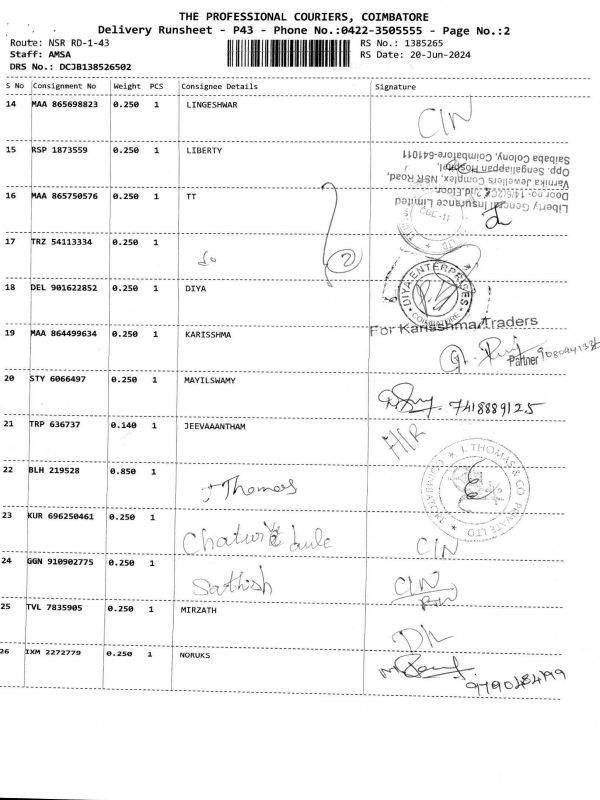 THE PROFESSIONAL COURIERS, COIMBATORE
Delivery Runsheet - P43 - Phone No.:0422-3505555 - Page No.:2
Route: NSR RD-1-43 RS No.: 1385265
Staff: AMSA RS Date: 20-Jun-2024
DRS No.: DCJB138526502
S No Consignment No Weight PCS Consignee Details Signature
14 MAA 865698823 0.250 1 LINGESHWAR
CIN
15 RSP 1873559 0.250 1 LIBERTY
Liberty General Insurance Limited
Varnika Jewellers Complex, NSR Road,
Opp. Sengaliappan
Saibaba Colony, Coimbatore-641011
16 MAA 865750576 0.250 1 TT
17 TRZ 54113334 0.250 1
2
18 DEL 901622852 0.250 1 DIYA
DIYA ENTERPRISES
COIMBATORE
19 MAA 864499634 0.250 1 KARISSHMA
For Karisshma Traders
Partner
20 STY 6066497 0.250 1 MAYILSWAMY
7418889125
21 TRP 636737 0.140 1 JEEVAAANTHAM
22 BLH 219528 0.850 1
Thomas
J. THOMAS & CO PRIVATE LTD
23 KUR 696250461 0.250 1
CIN
24 GGN 910902775 0.250 1 Sathish
CIN
25 TVL 7835905 0.250 1 MIRZATH
26 IXM 2272779 0.250 1 NORUKS